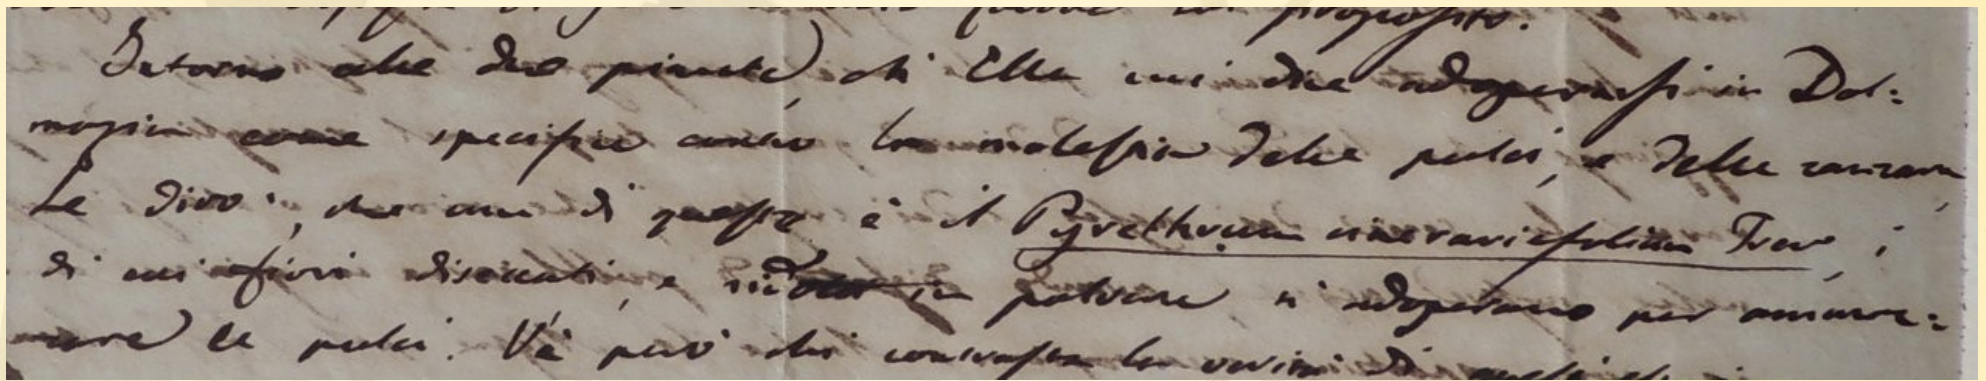 proposito.
Intorno alle due piante, ch' Ella mi dice adoperarsi in Dal=
mazia come specifico contro la molestia delle pulci, e delle zanzare,
Le dirò, che una di queste è il Pyrethrum cinerariefolium Trev, i
di cui fiori diseccati, e ridotti in polvere si adoperano per ammaz=
zare le pulci. V'è però chi contrasta la verità di